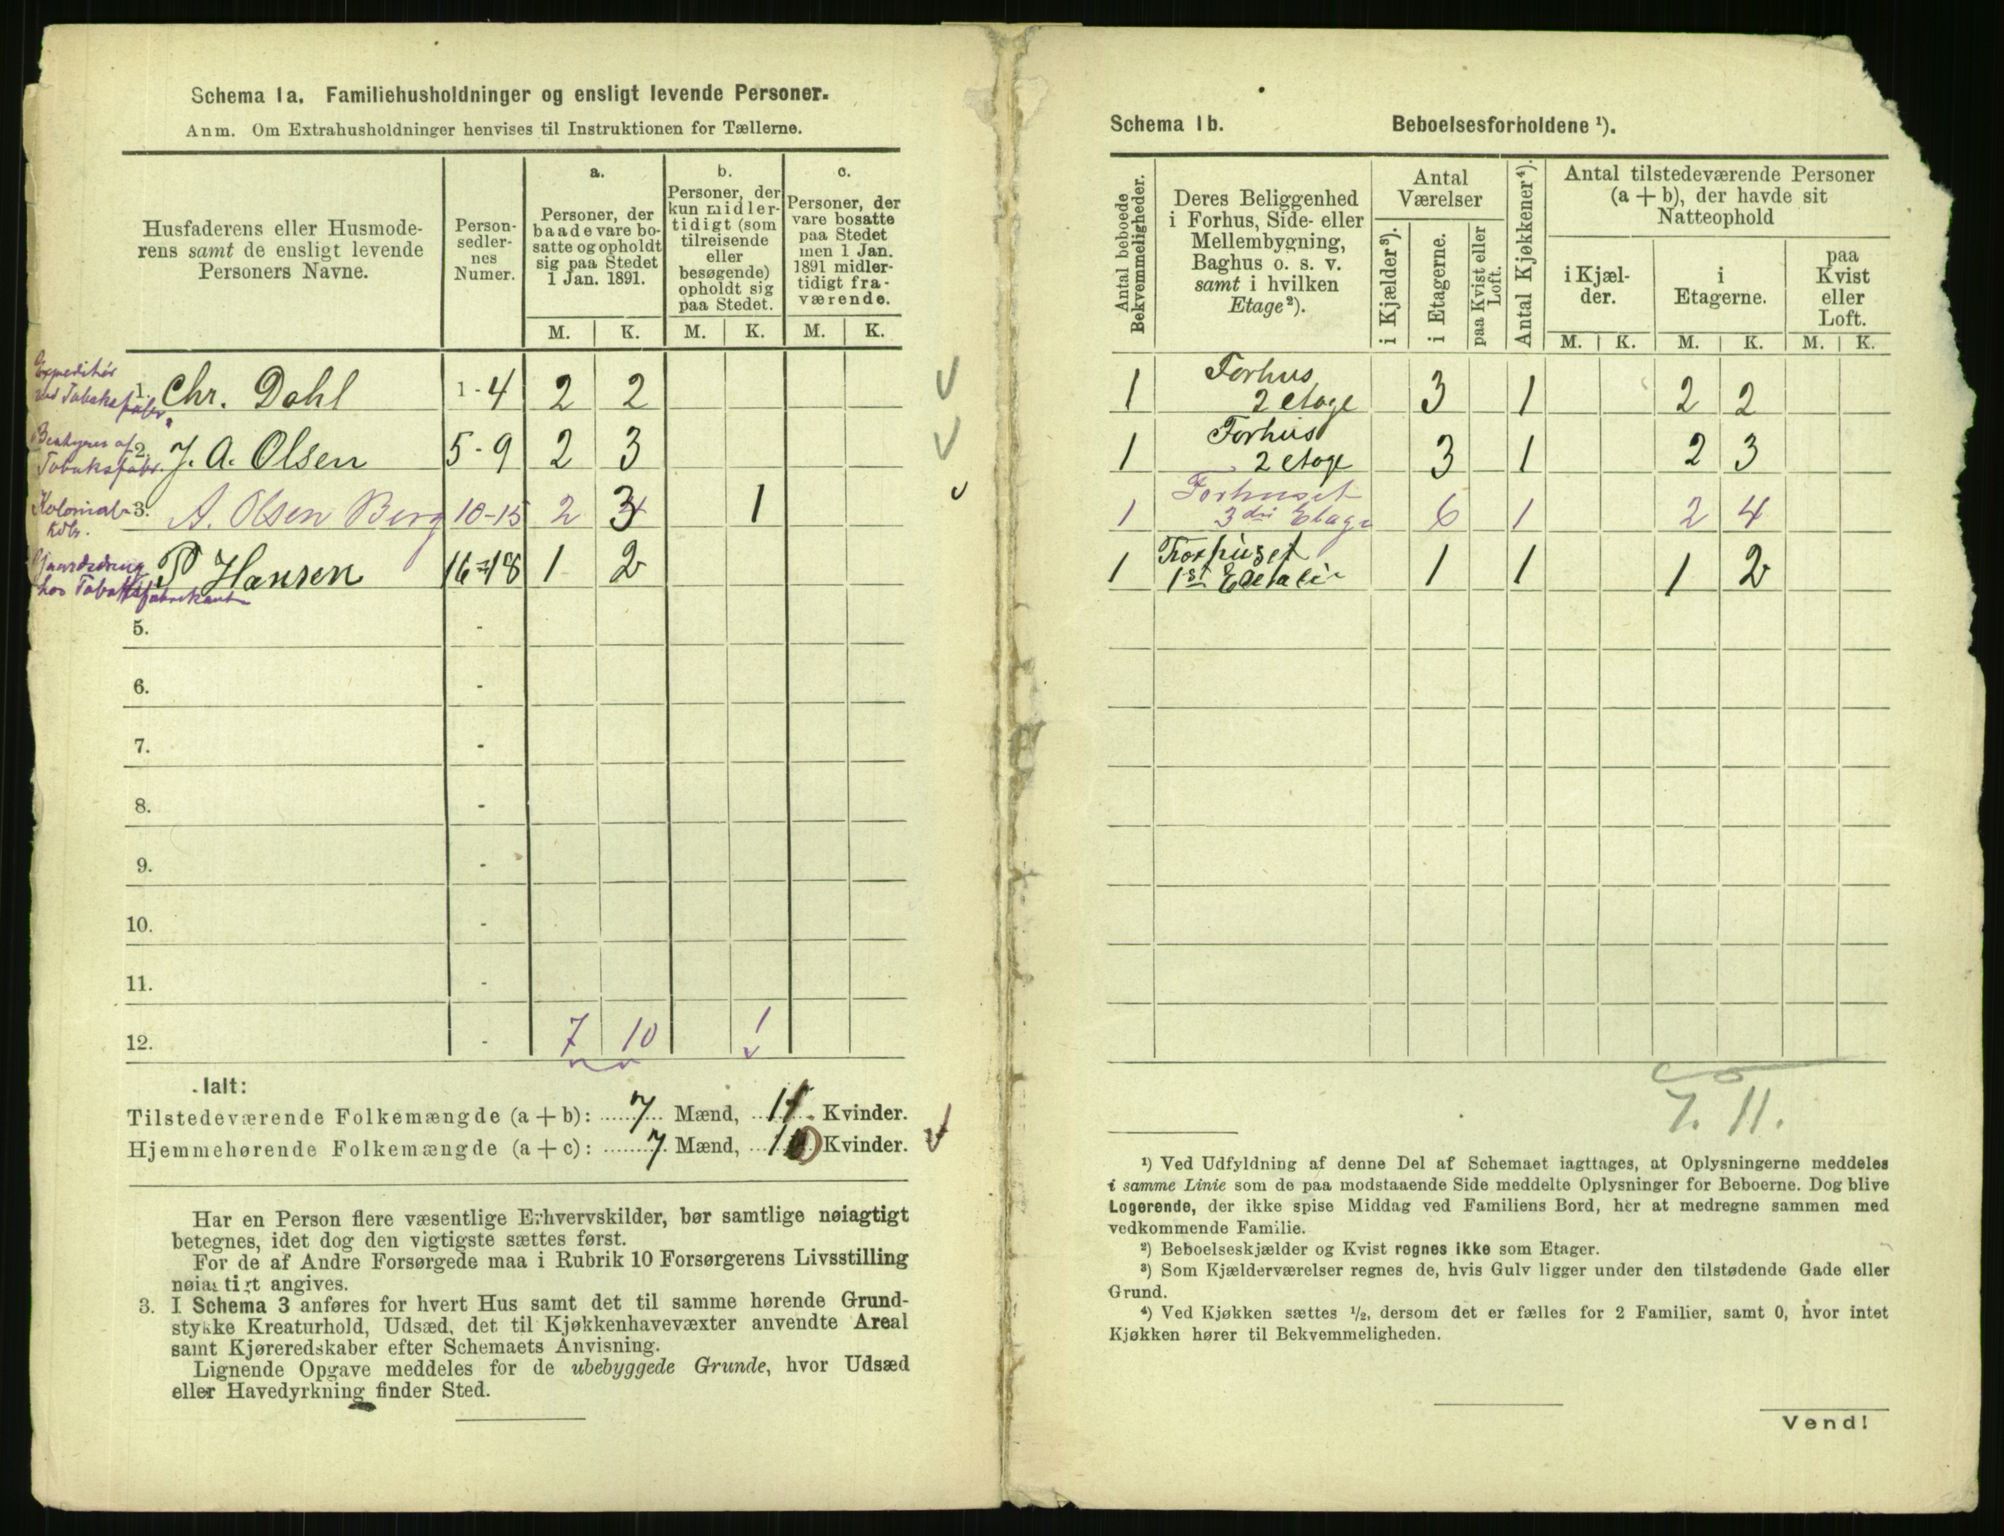 Schema 1a. Familiehusholdninger og ensligt levende Personer.
Anm. Om Extrahusholdninger henvises til Instruktionen for Tællerne.
Husfaderens eller Husmode-
rens samt de ensligt levende
Personers Navne.
Person-
sedler-
nes
Numer.
a.
Personer, der
baade vare bo-
satte og opholdt
sig paa Stedet
1 Jan. 1891.
b.
Personer, der
kun midler-
tidigt (som
tilreisende
eller
besøgende)
opholdt sig
paa Stedet.
c.
Personer, der
vare bosatte
paa Stedet
men 1 Jan.
1891 midler-
tidigt fra-
værende.
M. K. M. K. M. K.
Expeditør
ved Tobaksfabr.
1. Chr. Dahl 1-4 2 2
Bestyrer af
Tobaksfabr.
2. J. A. Olsen 5-9 2 3
Kolonial-
hdlr.
3. A. Olsen Berg 10-15 2 3 1
Gaardsdreng
hos Tobaksfabrikant
P Hansen 16-18 1 2
5. -
6. -
7. -
8. -
9. -
10. -
11. -
12. - 7 10 1
Ialt:
Tilstedeværende Folkemængde (a+b): 7 Mænd, 11 Kvinder.
Hjemmehørende Folkemængde (a+c): 7 Mænd, 10 Kvinder.
Har en Person flere væsentlige Erhvervskilder, bør samtlige nøiagtigt
betegnes, idet dog den vigtigste sættes først.
For de af Andre Forsørgede maa i Rubrik 10 Forsørgerens Livsstilling
nøiagtigt angives.
3. I Schema 3 anføres for hvert Hus samt det til samme hørende Grund-
stykke Kreaturhold, Udsæd, det til Kjøkkenhavevæxter anvendte Areal
samt Kjøreredskaber efter Schemaets Anvisning.
Lignende Opgave meddeles for de ubebyggede Grunde, hvor Udsæd
eller Havedyrkning finder Sted.
Schema 1b. Beboelsesforholdene ¹).
Antal beboede
Bekvemmeligheder.
Deres Beliggenhed
i Forhus, Side- eller
Mellembygning,
Baghus o. s. v.
samt i hvilken
Etage²).
Antal
Værelser
i Kjælder³).
i Etagerne.
paa Kvist eller
Loft.
Antal Kjøkkener⁴).
Antal tilstedeværende Personer
(a+b), der havde sit
Natteophold
i Kjæl-
der.
i
Etagerne.
paa
Kvist
eller
Loft.
M. K. M. K. M. K.
1 Forhus
2 etage 3 1 2 2
1 Forhus
2 etage 3 1 2 3
1 Forhuset
3die Etage 6 1 2 4
1 Forhuset
1st 1 1 1 2
7. 11.
¹) Ved Udfyldning af denne Del af Schemaet iagttages, at Oplysningerne meddeles
i samme Linie som de paa modstaaende Side meddelte Oplysninger for Beboerne. Dog blive
Logerende, der ikke spise Middag ved Familiens Bord, her at medregne sammen med
vedkommende Familie.
²) Beboelseskjælder og Kvist regnes ikke som Etager.
³) Som Kjælderværelser regnes de, hvis Gulv ligger under den tilstødende Gade eller
Grund.
⁴) Ved Kjøkken sættes ½, dersom det er fælles for 2 Familier, samt 0, hvor intet
Kjøkken hører til Bekvemmeligheden.
Vend!